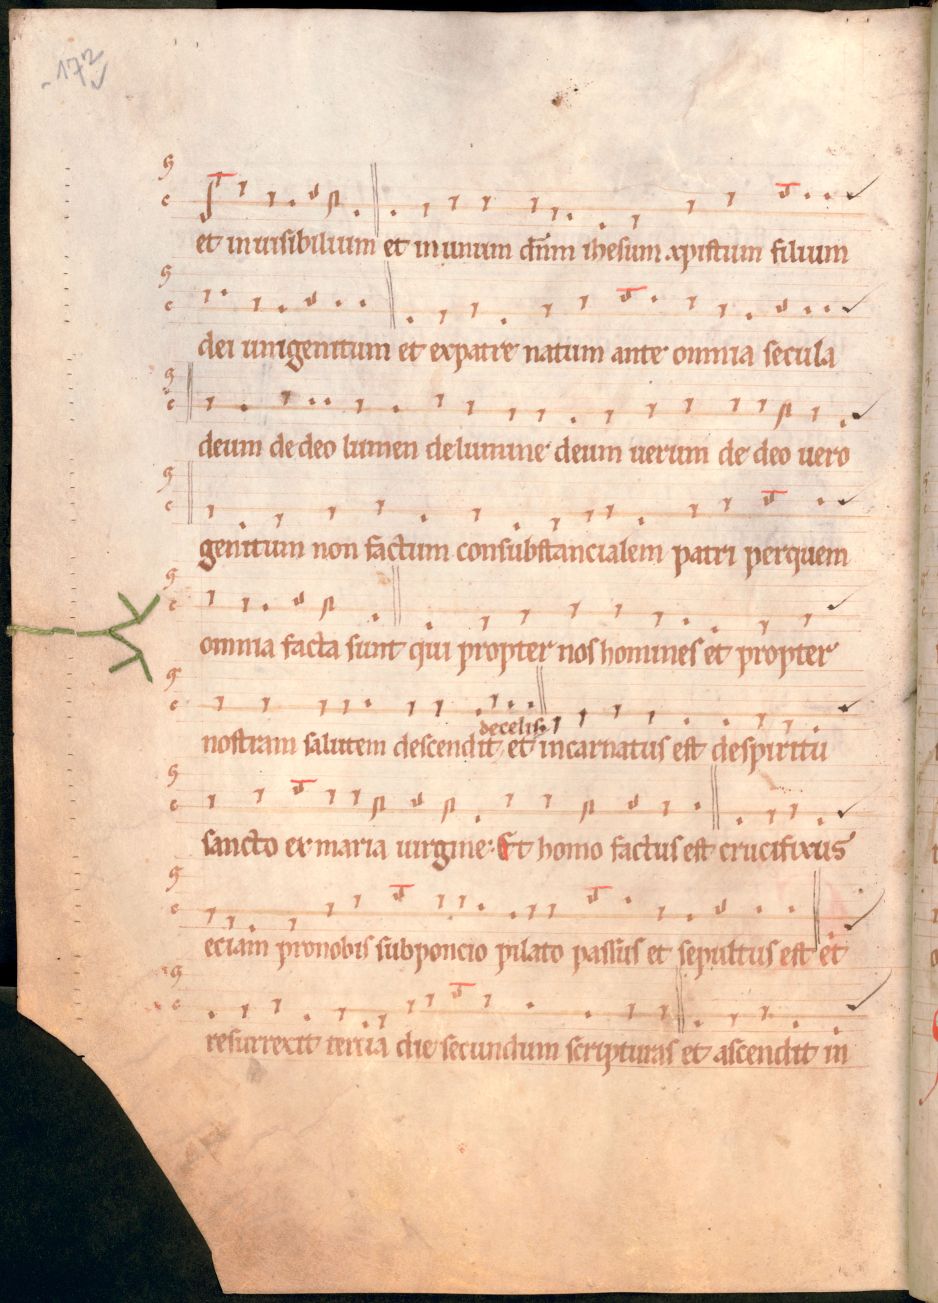 172
et inuisibilium et in unum dn̄m ihesum xpistum filium
dei unigenitum et ex patre natum ante omnia secula
deum de deo lumen de lumine deum uerum de deo uero
genitum non factum consubstancialem patri per quem
omnia facta sunt qui propter nos homines et propter
de celis
nostram salutem descendit et incarnatus est de spiritu
sancto ex maria uirgine. Et homo factus est crucifixus
eciam pro nobis sub poncio pilato passus et sepultus est et
resurrexit tercia die secundum scripturas et ascendit in